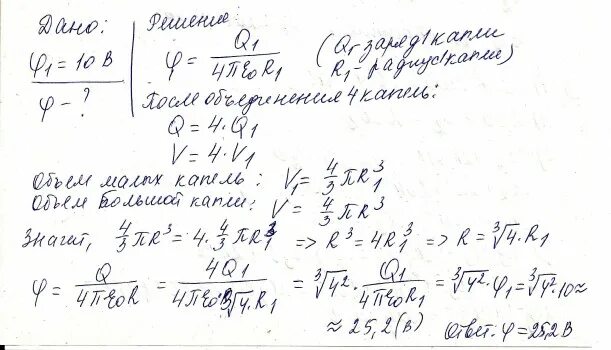 Дано:
φ₁ = 10 В
φ - ?
Решение:
φ = Q₁/(4πε₀R₁) (Q₁ - заряд 1 капли
R₁ - радиус 1 капли)
После объединения 4 капель:
Q = 4·Q₁
V = 4·V₁
Объем малых капель: V₁ = 4/3 πR₁³
Объем большой капли: V = 4/3 πR³
Значит, 4/3 πR³ = 4·4/3 πR₁³ => R³ = 4R₁³ => R = ∛4·R₁
φ = Q/(4πε₀R) = 4Q₁/(4πε₀·∛4·R₁) = ∛4²·Q₁/(4πε₀R₁) = ∛4²·φ₁ = ∛4²·10 ≈
≈ 25,2 (В) Ответ: φ = 25,2 В